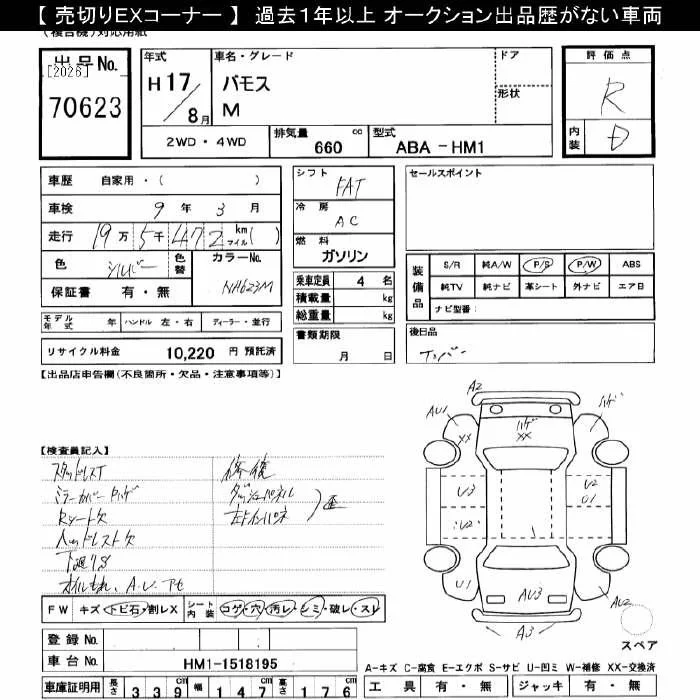 【 売切りEXコーナー 】 過去1年以上 オークション出品歴がない車両
(複合機)対応用紙
出品No. [2026] 70623
年式 H17/8月
車名・グレード バモス M
ドア
形状
2WD・4WD
排気量 660 cc
型式 ABA-HM1
評価点 R
内装 D
車歴 自家用・( )
車検 9年 3月
走行 19万5千472 km マイル( )
色 シルバー 色替
カラーNo. NH623M
保証書 有・無
シフト FAT
冷房 AC
燃料 ガソリン
乗車定員 4 名
積載量 kg
総重量 kg
セールスポイント
装備品 S/R 純A/W P/S P/W ABS
純TV 純ナビ 革シート 外ナビ エアB
ナビ型番:
モデル年式 年 ハンドル 左・右 ディーラー・並行
書類期限 月 日
後日品
リサイクル料金 10,220 円 預託済
【出品店申告欄(不良箇所・欠品・注意事項等)】
A2
AU1 XX
ハゲ XX
ハゲ
U3
U2 U1
1
U1
AU3
AU2
A3
スペア
【検査員記入】
スタッドレスT 修復
ダッシュパネル
Rシート欠
ヘッドレスト欠
下廻りS
オイルもれ、A.U.アセ
FW キズ・トビ石・割レX
シート内装 コゲ・穴・汚レ・シミ・破レ・スレ
登録No.
車台No. HM1-1518195
車庫証明用 長さ 339cm 幅 147cm 高さ 176cm
A-キズ C-腐食 E-エクボ S-サビ U-凹ミ W-補修 XX-交換済
工具 有・無 ジャッキ 有・無